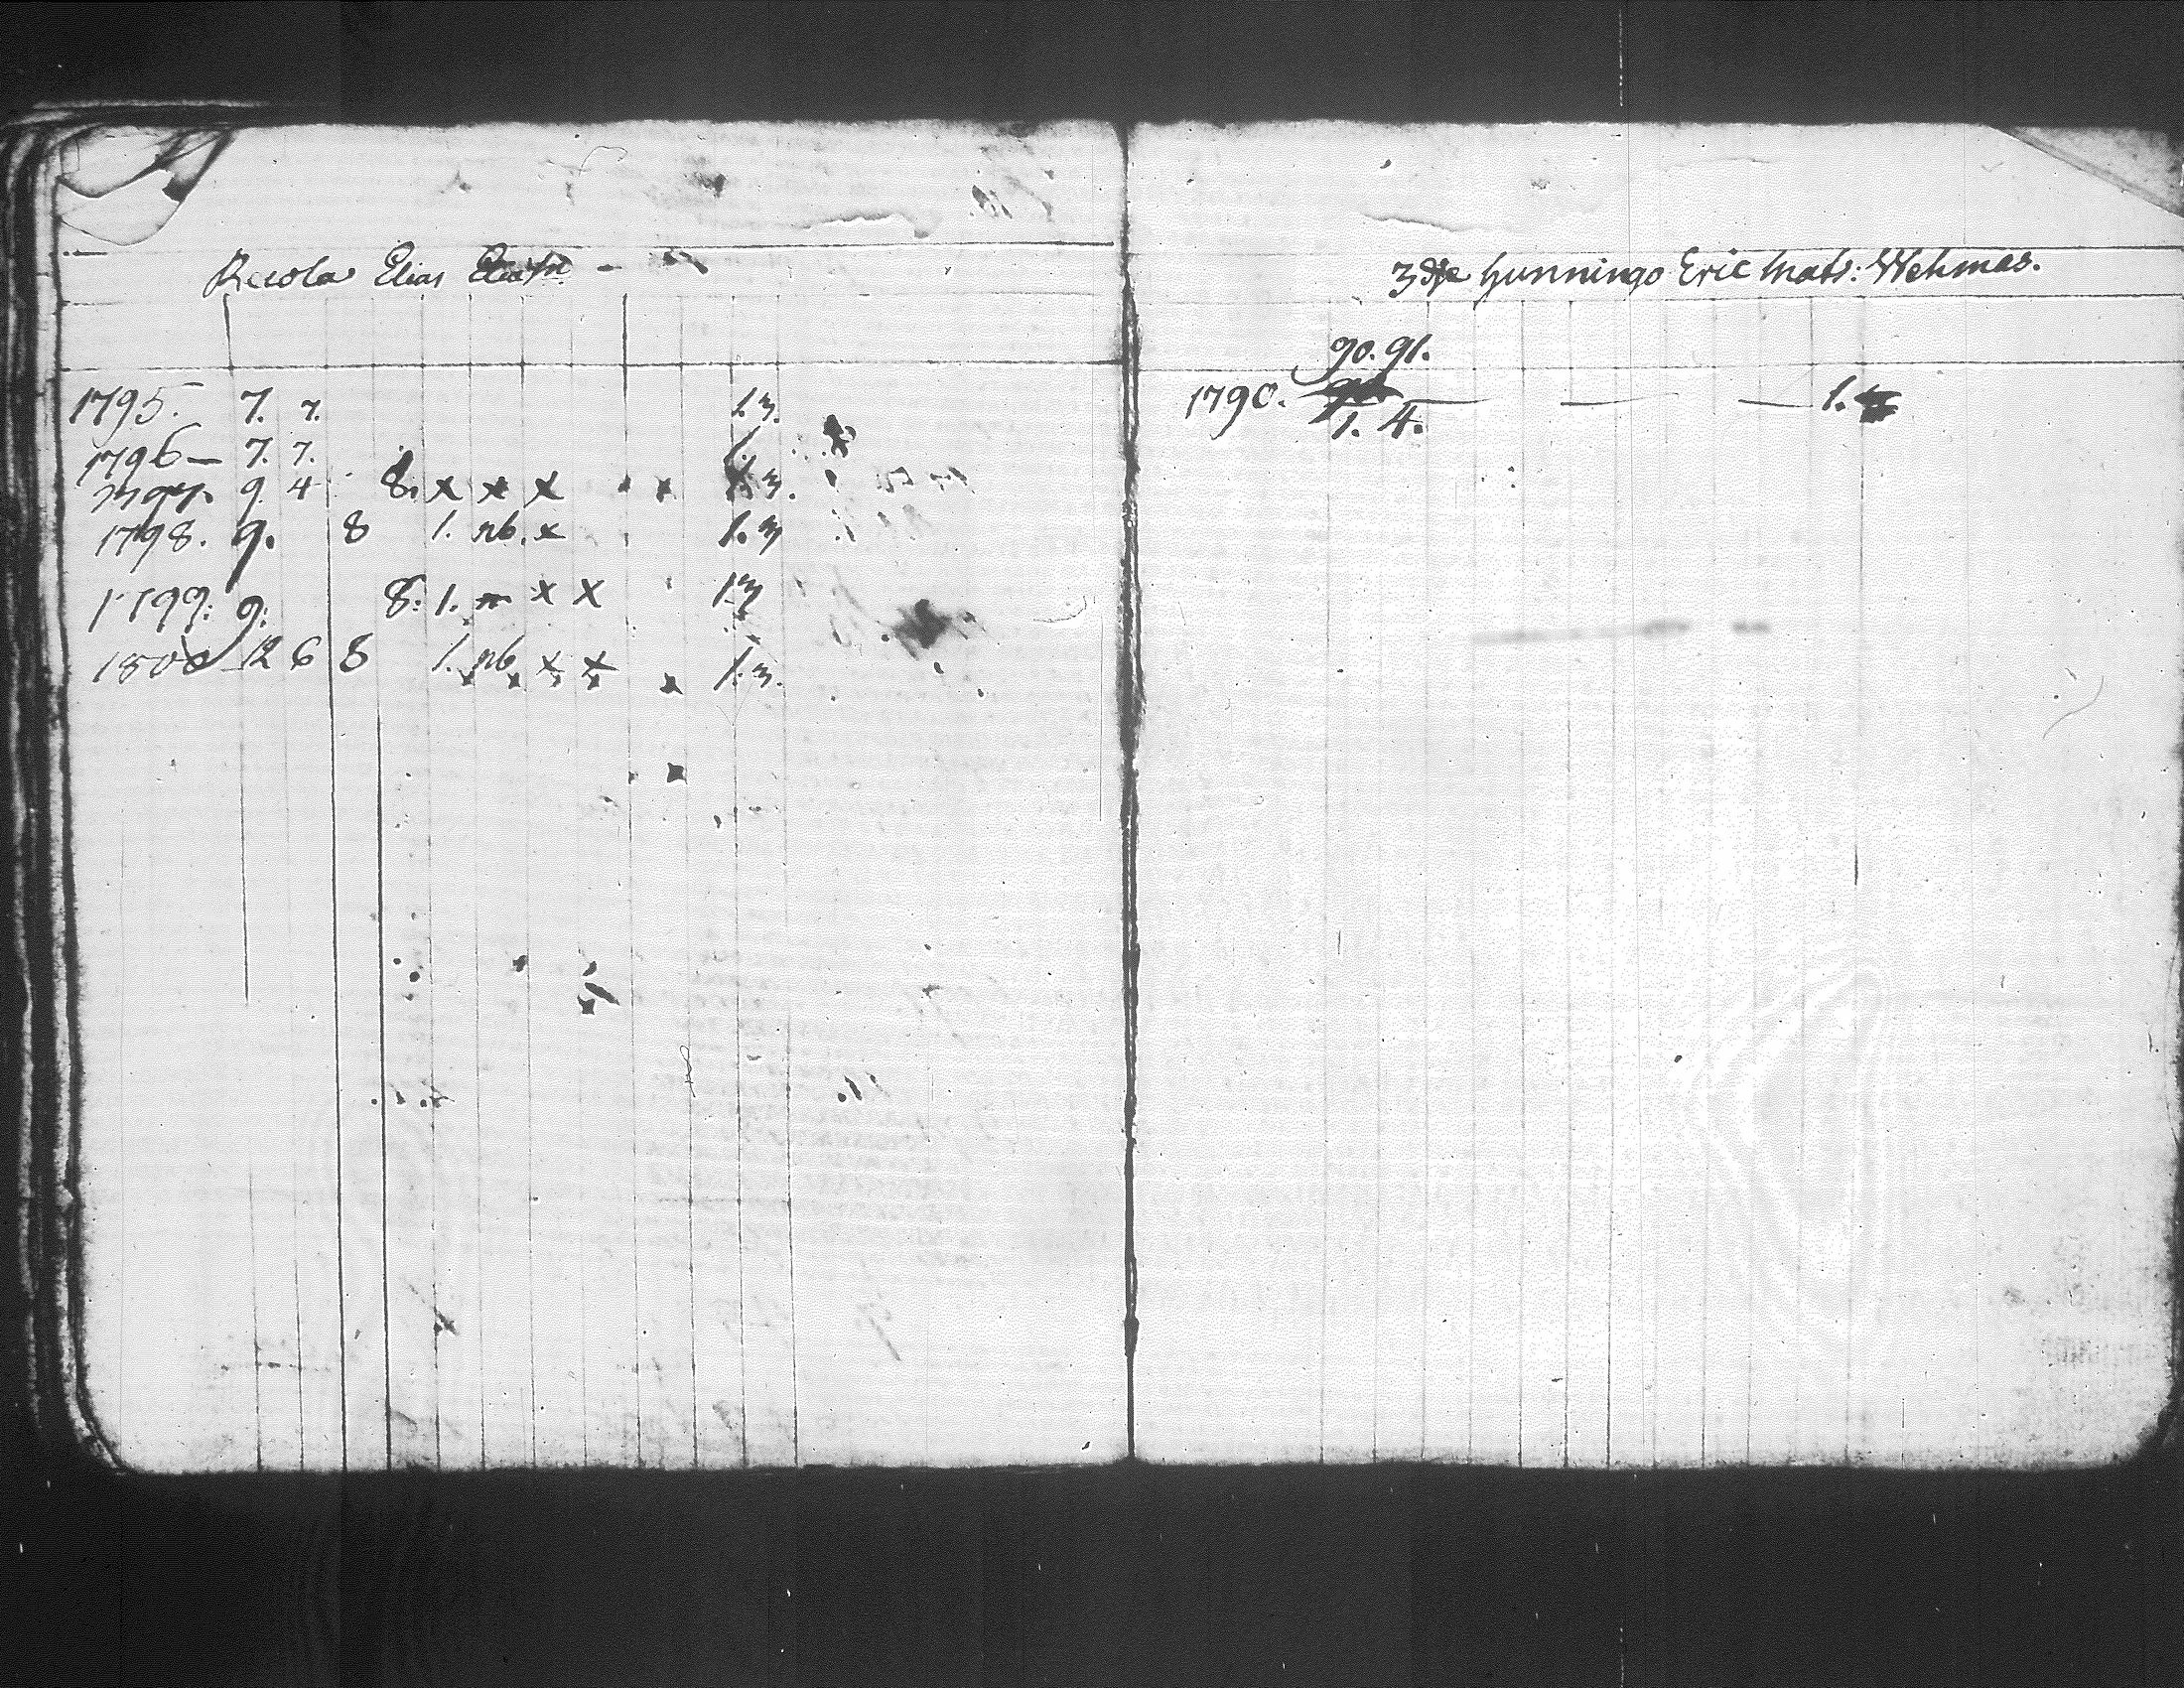 Recola Elias Eliæson -
1795. 7. 7. 1.3.
1796 - 7. 7. 1.
1797. 9 4 8. x x x x 1.3.
1798. 9. 8 1. nb. x 1.3
1799: 9: 8. 1. x x 1.3
1800 12 6 8 1. nb x x 1.3.
3dje hunningo Eric Mats: Wehmas.
90. 91.
1790. — — — 1.
1. 4.